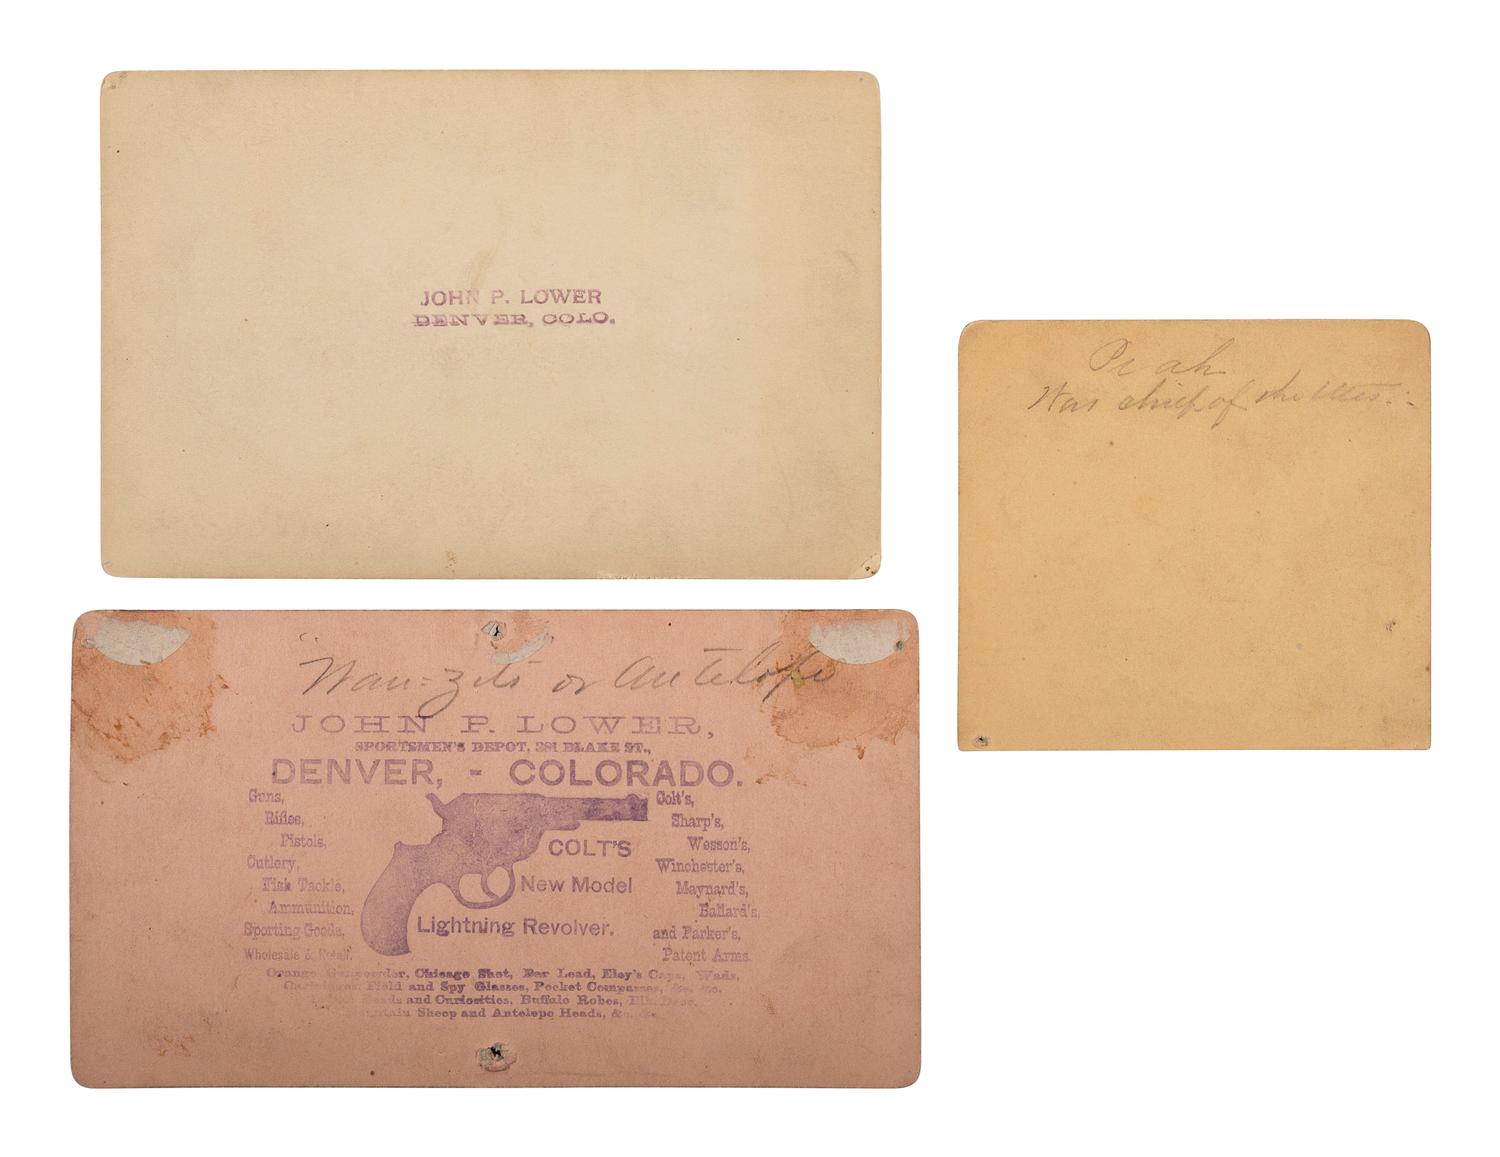 JOHN P. LOWER
DENVER, COLO.
Peah
War chief of the Utes.
"Wan-zits or Antelope
JOHN P. LOWER,
SPORTSMEN'S DEPOT, 381 BLAKE ST.,
DENVER, - COLORADO.
Guns,
Rifles,
Pistols,
Cutlery,
Fish Tackle,
Ammunition,
Sporting Goods,
Wholesale & Retail.
COLT'S
New Model
Lightning Revolver.
Colt's,
Sharp's,
Wesson's,
Winchester's,
Maynard's,
Ballard's,
and Parker's,
Patent Arms.
Orange Gunpowder, Chicago Shot, Bar Lead, Eley's Caps, Wads,
Cartridges, Field and Spy Glasses, Pocket Compasses, &c. &c.
Heads and Curiosities, Buffalo Robes, Elk, Deer,
Mountain Sheep and Antelope Heads, &c. &c.